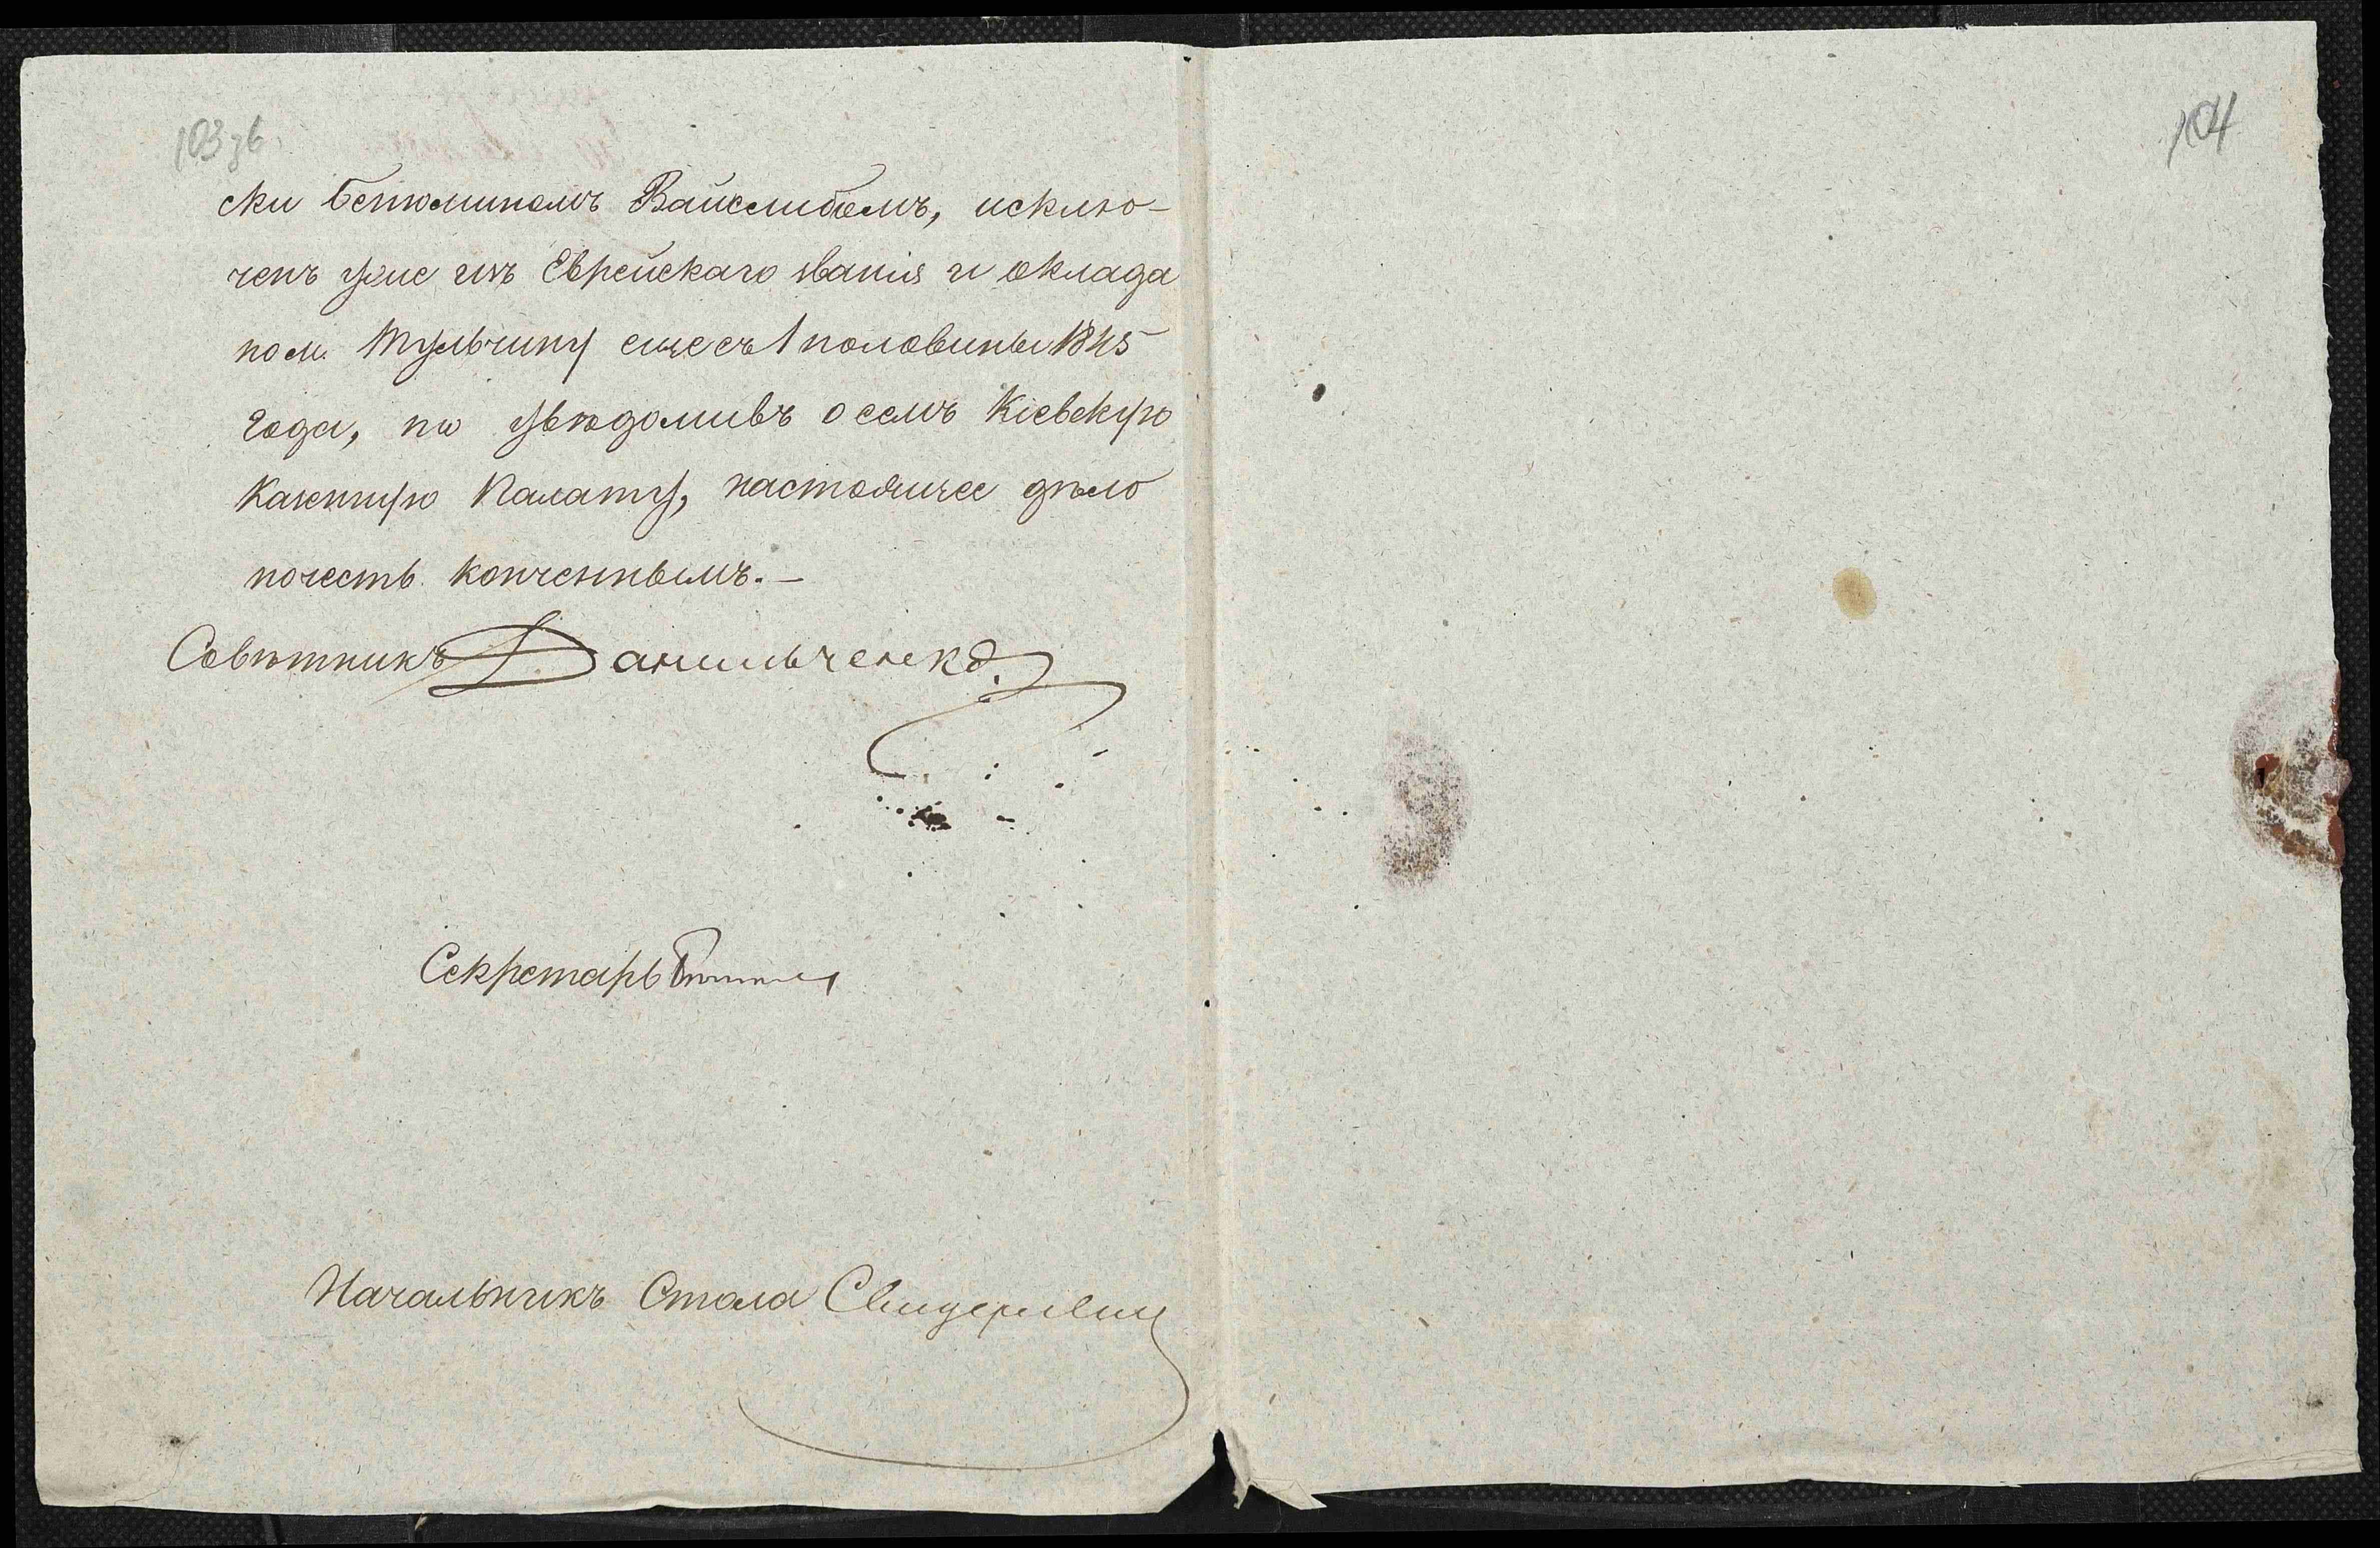 103зв
104
ски Бенюминомъ Вайслибомъ, исклю-
ченъ уже изъ Еврейскаго званія и оклада
по м. Тульчину еще съ 1 половины 1845
года, по увѣдомивъ о семъ Кіевскую
Казенную Палату, настоящее дѣло
почесть конченнымъ.-
Совѣтникъ Данильченко
Секретарь
Начальникъ Стола